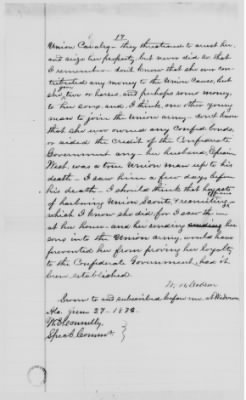 17
Union Cavalry - they threatened to arrest her,
and seize her property, but never did so that
I remember - don't know that she ever con-
tributed any money to the Union cause, but
she, two or horses, and perhaps some money,
to her son, and, I think, one other young
man to join the Union army - don't know
that she ever owned any Confed. bonds,
or aided the Credit of the Confederate
Government any - her husband,
West, was a true Union man up to his
death - I saw him a few days before
his death - I should think that her acts
of harboring Union Scouts, & recruiting officers
which I know she did for I saw them
at her house - and her sending
sons into the Union army, would have
prevented her from proving her loyalty
to the Confederate Government, had it
been established
Sworn to and subscribed before me at
Ala June 27 - 1876.
Connelly
Spec'l Commr